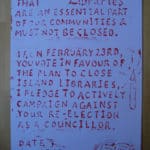 THAT LIBRARIES
ARE AN ESSENTIAL PART
OF OUR COMMUNITIES &
MUST NOT BE CLOSED.
IF, ON FEBRUARY 23RD,
YOU VOTE IN FAVOUR OF
THE PLAN TO CLOSE
ISLAND LIBRARIES,
I PLEDGE TO ACTIVELY
CAMPAIGN AGAINST
YOUR RE-ELECTION
AS A COUNCILLOR.
DATE